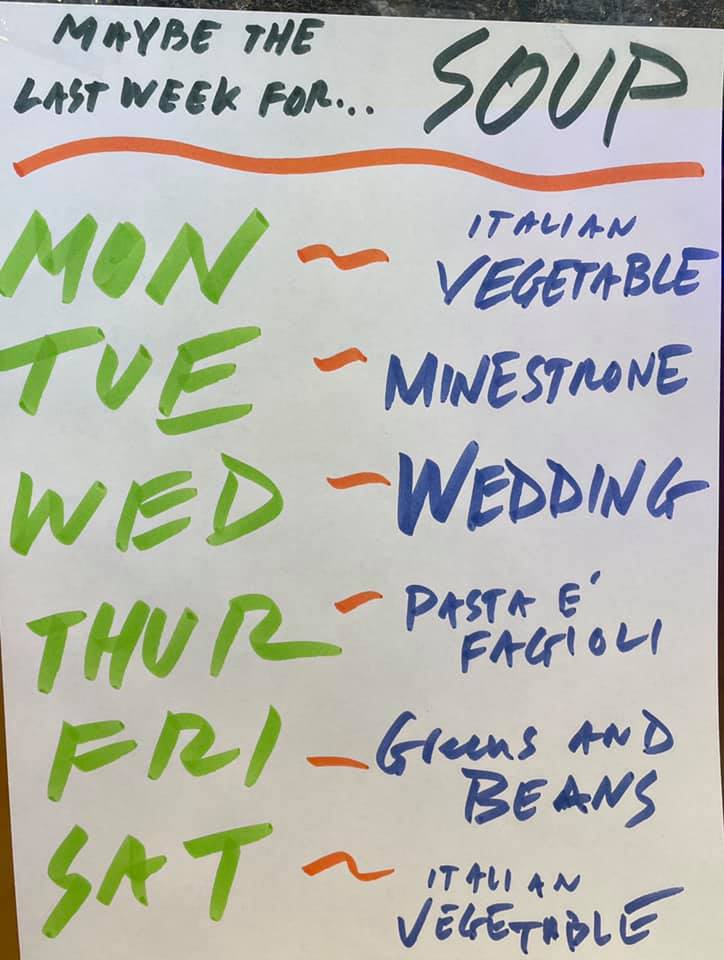 MAYBE THE
LAST WEEK FOR... SOUP
MON ~ ITALIAN
VEGETABLE
TUE ~ MINESTRONE
WED ~ WEDDING
THUR ~ PASTA E'
FAGIOLI
FRI - Greens AND
BEANS
SAT ~ ITALIAN
VEGETABLE